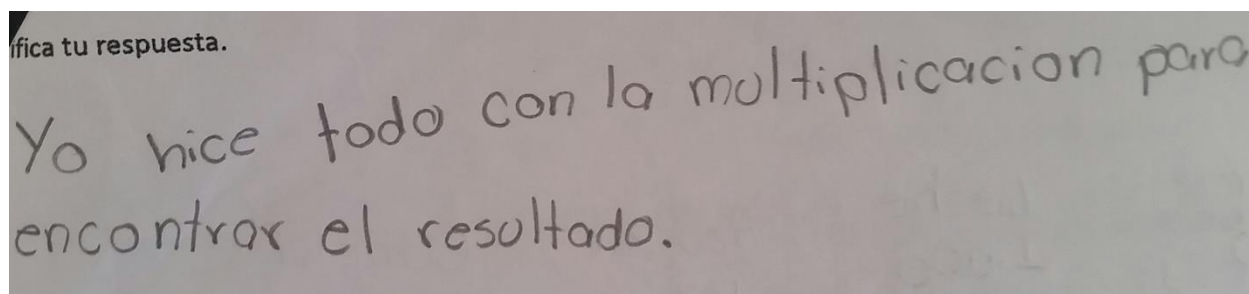 ifica tu respuesta.
Yo hice todo con la multiplicacion para
encontrar el resultado.